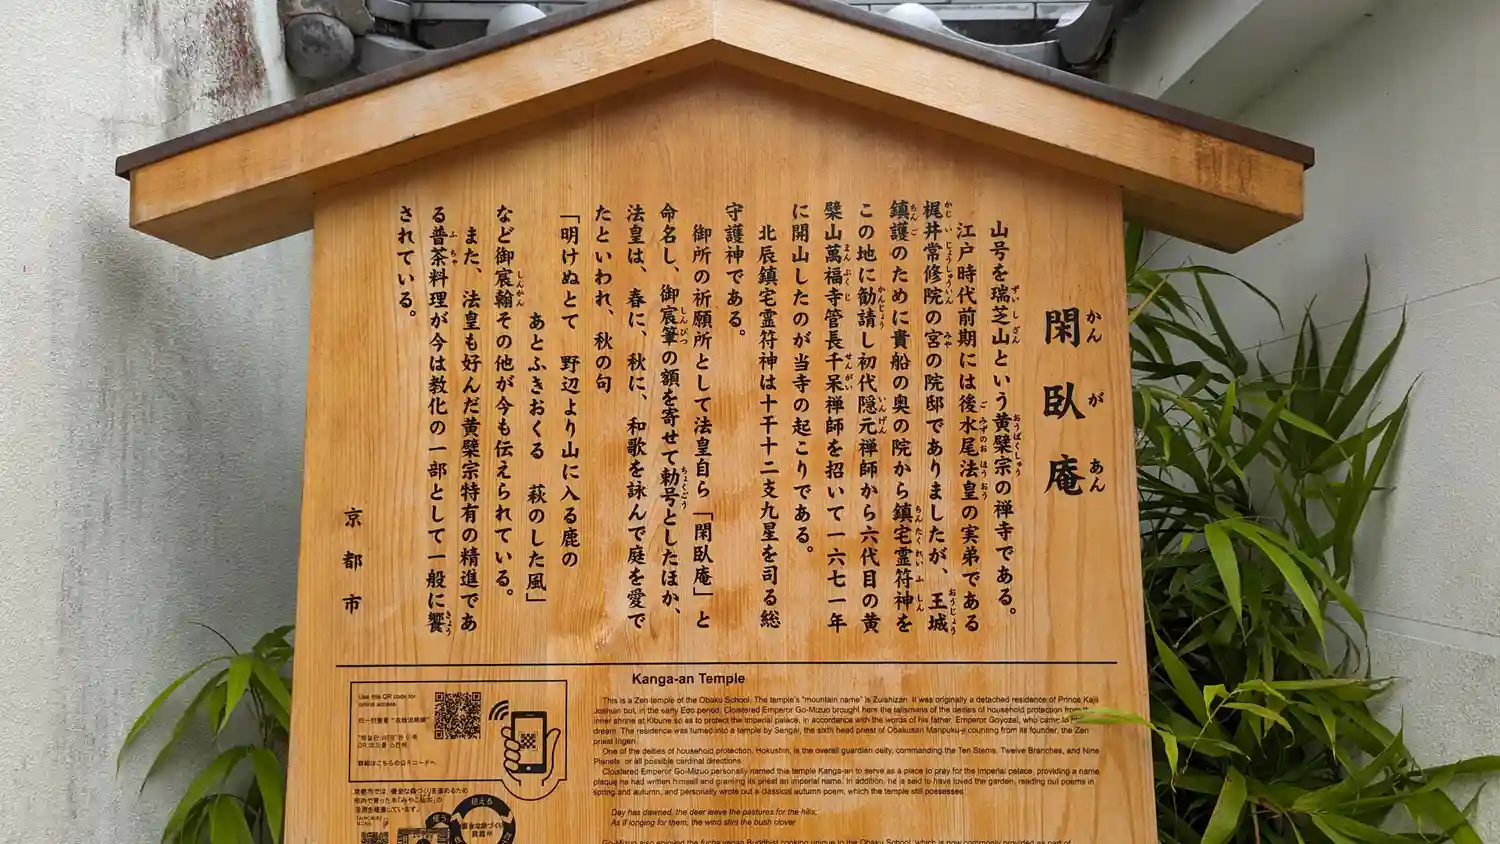 閑臥庵
かん が あん
山号を瑞芝山という黄檗宗の禅寺である。
江戸時代前期には後水尾法皇の実弟である
梶井常修院の宮の院邸でありましたが、王城
鎮護のために貴船の奥の院から鎮宅霊符神を
この地に勧請し初代隠元禅師から六代目の黄
檗山萬福寺管長千呆禅師を招いて一六七一年
に開山したのが当寺の起こりである。
北辰鎮宅霊符神は十干十二支九星を司る総
守護神である。
御所の祈願所として法皇自ら「閑臥庵」と
命名し、御宸筆の額を寄せて勅号としたほか、
法皇は、春に、秋に、和歌を詠んで庭を愛で
たといわれ、秋の句
「明けぬとて 野辺より山に入る鹿の
あとふきおくる 萩のした風」
など御宸翰その他が今も伝えられている。
また、法皇も好んだ黄檗宗特有の精進であ
る普茶料理が今は教化の一部として一般に饗
されている。
京都市
Kanga-an Temple
This is a Zen temple of the Obaku School. The temple's "mountain name" is Zuishizan. It was originally a detached residence of Prince Kajii
Joshuin but, in the early Edo period, Cloistered Emperor Go-Mizuo brought here the talismans of the deities of household protection from the
inner shrine at Kibune so as to protect the imperial palace, in accordance with the words of his father, Emperor Goyozei, who came to
dream. The residence was turned into a temple by Sengai, the sixth head priest of Obakusan Manpuku-ji counting from its founder, the Zen
priest Ingen.
One of the deities of household protection, Hokushin, is the overall guardian deity, commanding the Ten Stems, Twelve Branches, and Nine
Planets or all possible cardinal directions.
Cloistered Emperor Go-Mizuo personally named this temple Kanga-an to serve as a place to pray for the imperial palace, providing a name
plaque he had written himself and granting its priest an imperial name. In addition, he is said to have loved the garden, reading out poems in
spring and autumn, and personally wrote out a classical autumn poem, which the temple still possesses:
Day has dawned, the deer leave the pastures for the hills;
As if longing for them, the wind stirs the bush clover
Go-Mizuo also enjoyed the fucha vegan Buddhist cooking unique to the Obaku School, which is now commonly provided as part of
Use this QR code for
online access.
詳細はこちらのQRコードへ
京都市では、健全な森づくりを進めるため
市内で育った木「みやこ杣木」の
活用を推進しています。
植える
使う